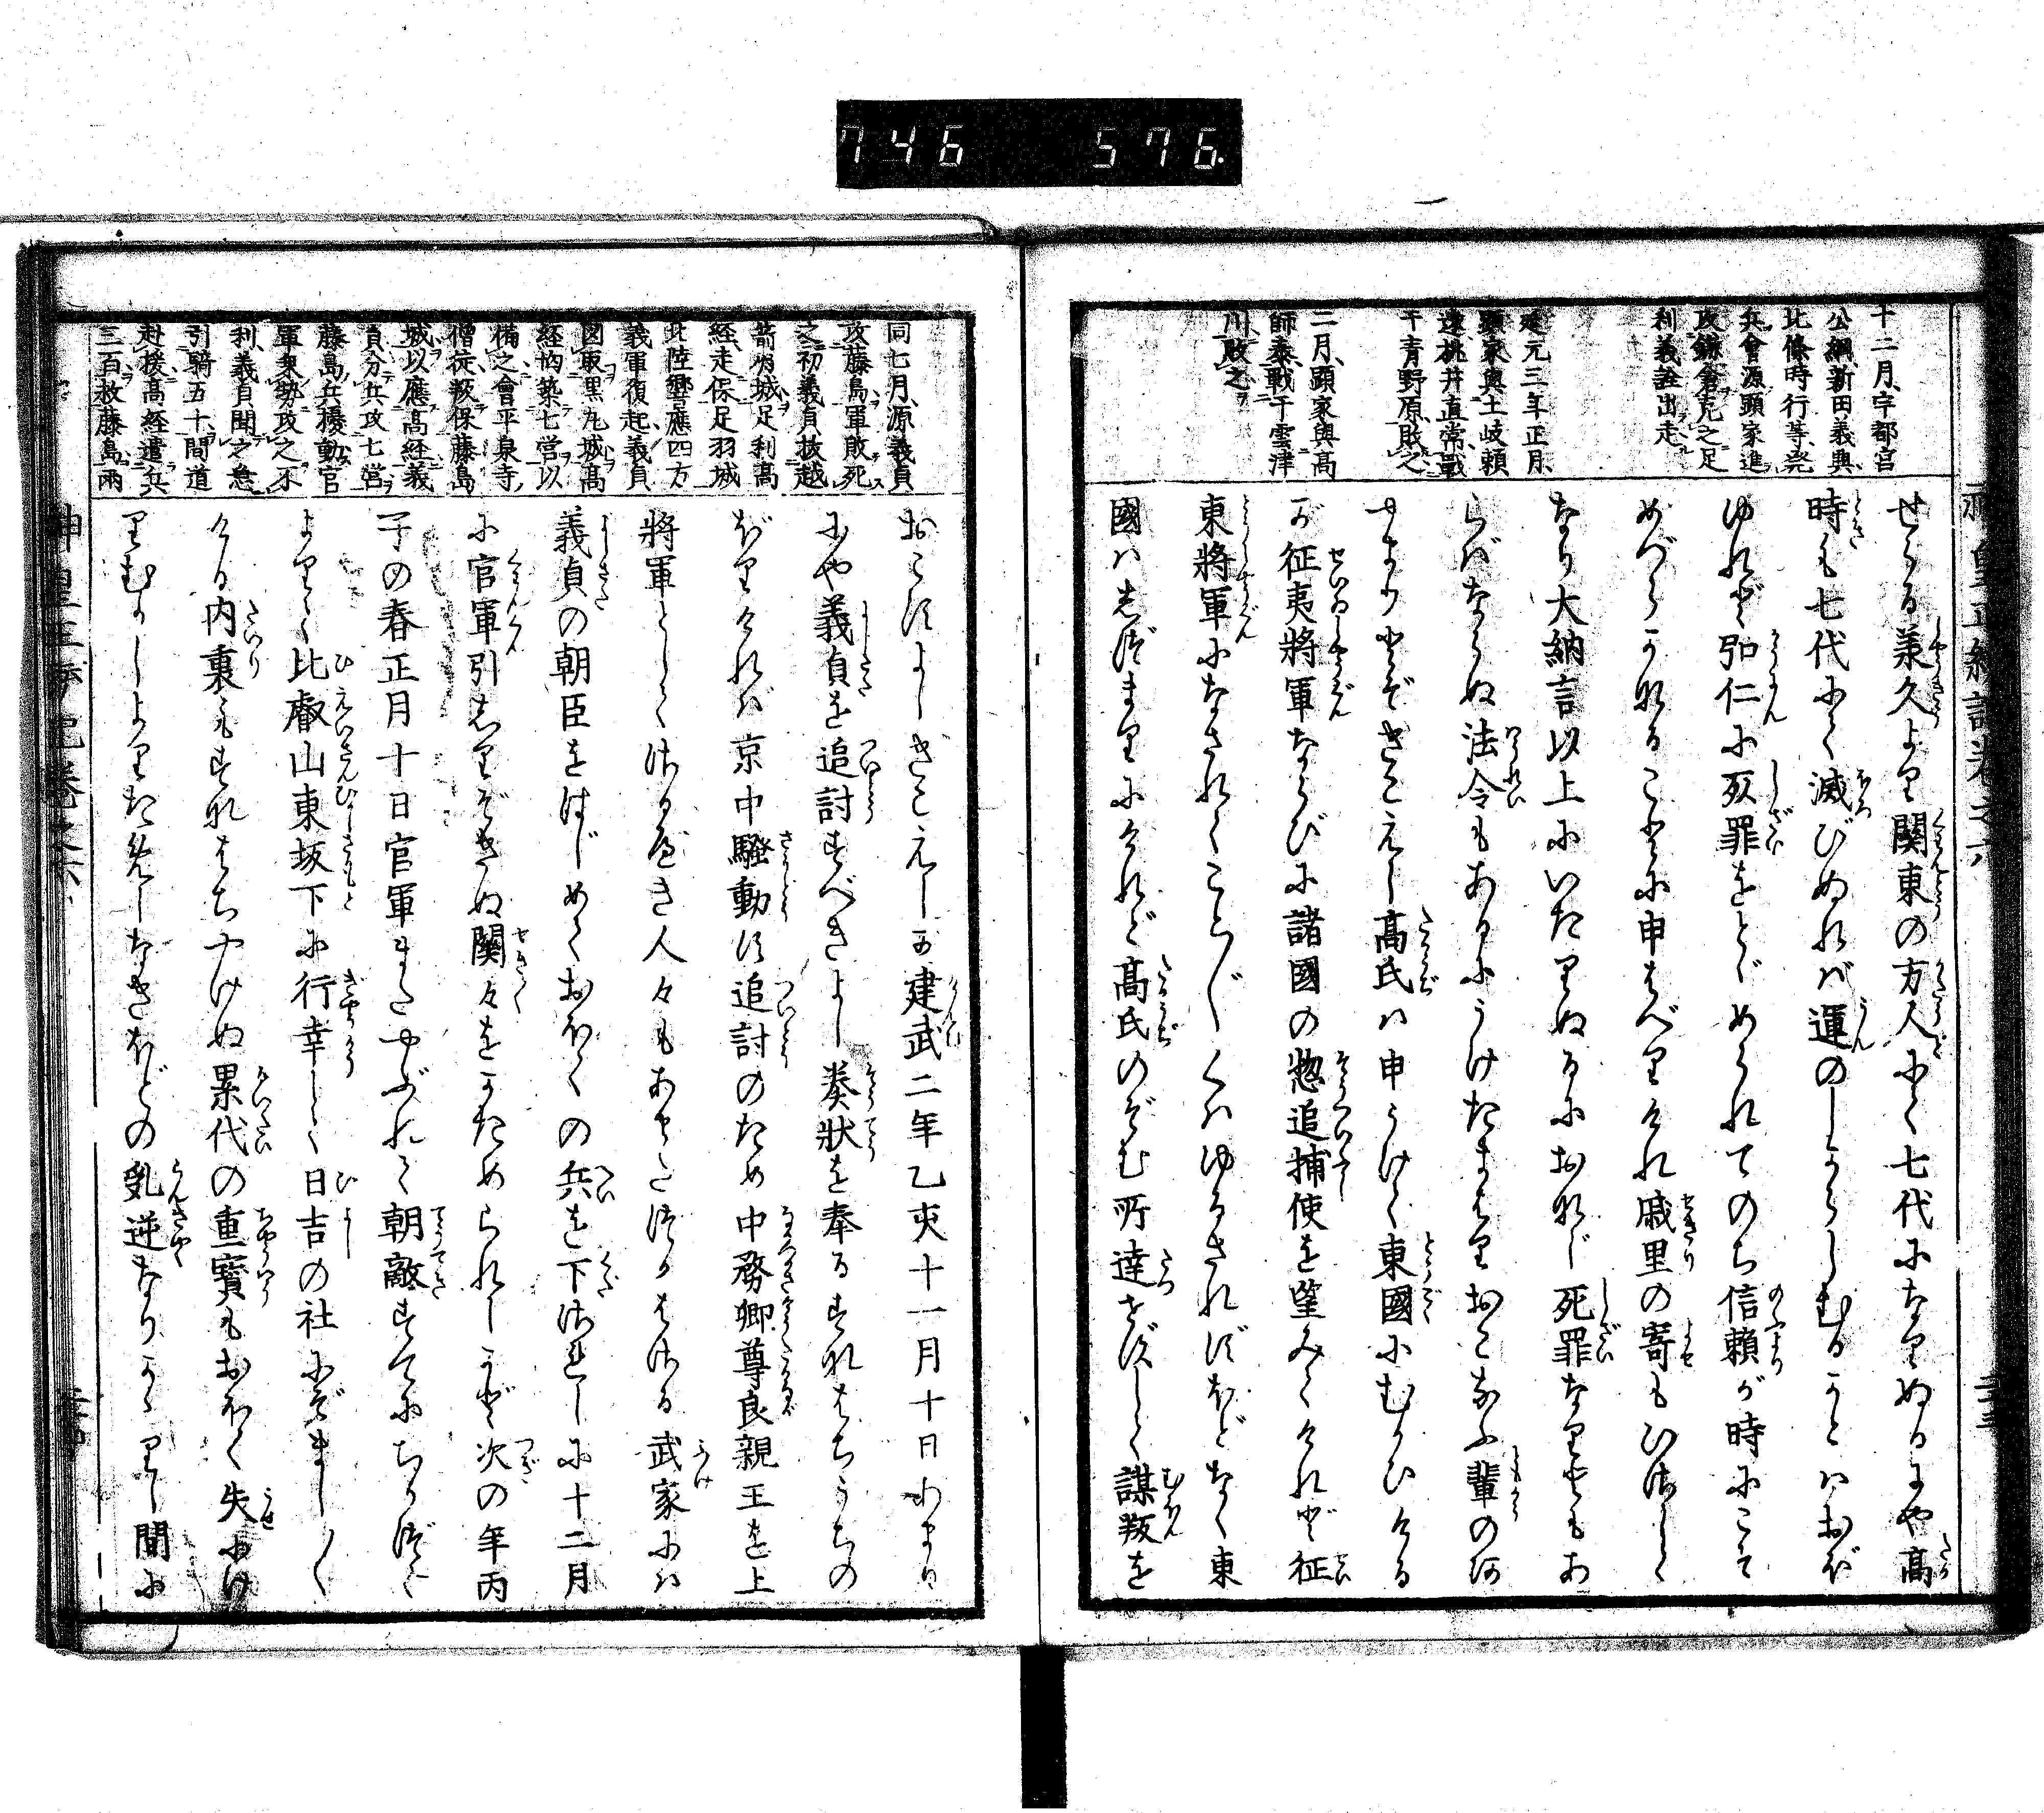 746 576.
十二月、宇都宮
公綱新田義興、
北條時行等、発
兵會源顕家進
攻鎌倉克之足
利義詮出走
延元三年正月、
顕家與土岐頼
遠、桃井直常、戰
于青野原敗之
二月、顕家與髙
師泰戰于雲津
川敗之
せらる承久より関東の方人にて七代になりぬるにや髙
時も七代にて滅びぬれば運のしからしむることはおぼ
ゆれど弘仁に死罪をとゞめられてのち信頼が時にこそ
めづらかなることに申はべりけれ戚里の寄もひさしく
なり大納言以上にいたりぬるにおなじ死罪なりともあ
らばならぬ法令もあるにうけたまはりおこなふ輩の
とぞきこえし髙氏は申うけて東國にむかひける
が征夷將軍ならびに諸國の惣追捕使を望みけれど征
東將軍になされてこと〴〵くはゆるされずほどなく東
國はしづまりにけれど髙氏のぞむ所達せずして謀叛を
神皇正統記巻之六
同七月、源義貞
攻藤島軍敗死
之初義貞抜越
前府城足利髙
経、走保足羽城
北陸響應四方
義軍復起義貞
図取黒丸城髙
経恟築七営以
備之會平泉寺
僧徒叛保藤島
城以應髙経義
貞分兵攻七営
藤島兵擾動官
軍乗勢攻之不
利、義貞聞之急
引騎五十間道
赴援髙経遣兵
三百救藤島兩
おこすよしきこえしが建武二年乙亥十一月十日あまり
にや義貞を追討すべきよし奏狀を奉るすなはちうちの
ぼりければ京中騒動す追討のため中務卿尊良親王を上
將軍としてさるべき人々もあまたつかはさる武家には
義貞の朝臣をはじめておほくの兵を下されしに十二月
に官軍引しりぞきぬ関々をかためられしかど次の年丙
子の春正月十日官軍またやぶれて朝敵すでにちかづく
よりて比叡山東坂下に行幸して日吉の社にぞましましく
ける内裏もすなはちやけぬ累代の重寳もおほく失にけ
りむかしよりためしなきほどの乱逆なりかゝりし間に
神皇正統記巻之六